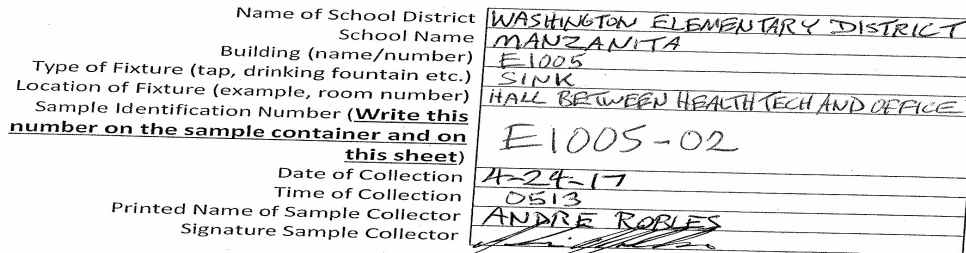 Name of School District WASHINGTON ELEMENTARY DISTRICT
School Name MANZANITA
Building (name/number) E1005
Type of Fixture (tap, drinking fountain etc.) SINK
Location of Fixture (example, room number) HALL BETWEEN HEALTH TECH AND OFFICE
Sample Identification Number (Write this
number on the sample container and on
this sheet) E1005-02
Date of Collection 4-24-17
Time of Collection 0513
Printed Name of Sample Collector ANDRE ROBLES
Signature Sample Collector